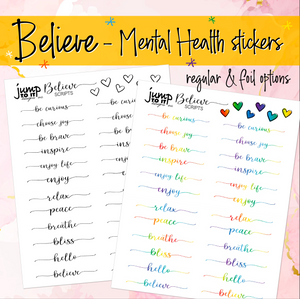 Believe - Mental Health stickers
regular & foil options
jump
to it!
Believe
SCRIPTS
be curious
be curious
choose joy
choose joy
be brave
be brave
inspire
inspire
enjoy life
enjoy life
enjoy
enjoy
relax
relax
peace
peace
breathe
breathe
bliss
bliss
hello
hello
believe
jump
to it!
Believe
SCRIPTS
be curious
be curious
choose joy
choose joy
be brave
be brave
inspire
inspire
enjoy life
enjoy life
enjoy
enjoy
relax
relax
peace
peace
breathe
breathe
bliss
bliss
hello
hello
believe
believe